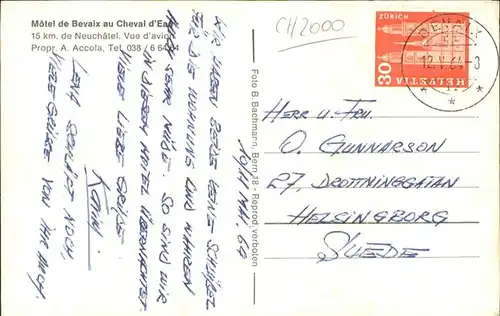 Môtel de Bevaix au Cheval d'Eau
15 km. de Neuchâtel. Vue d'avion
Propr. A. Accola, Tel. 038 / 6 64
CH/2000
ZÜRICH
30
HELVETIA
12.V.64-3
WIR HABEN
FÜR DIE WOHNUNG UND WAREN
AUCH SEHR MÜDE. SO SIND WIR
IN DIESEM MOTEL ÜBERNACHTET.
VIELE LIEBE GRÜSSE
KARIN
LENA SCHLÄFT NOCH.
VIELE GRÜSSE VON IHR AUCH.
10/11 MAI. 64
Foto B. Bachmann, Bern 18 - Reprod. verboten
HERR U. FRU.
O. GUNNARSON
27, DROTTNINGGATAN
HELSINGBORG
SUEDE